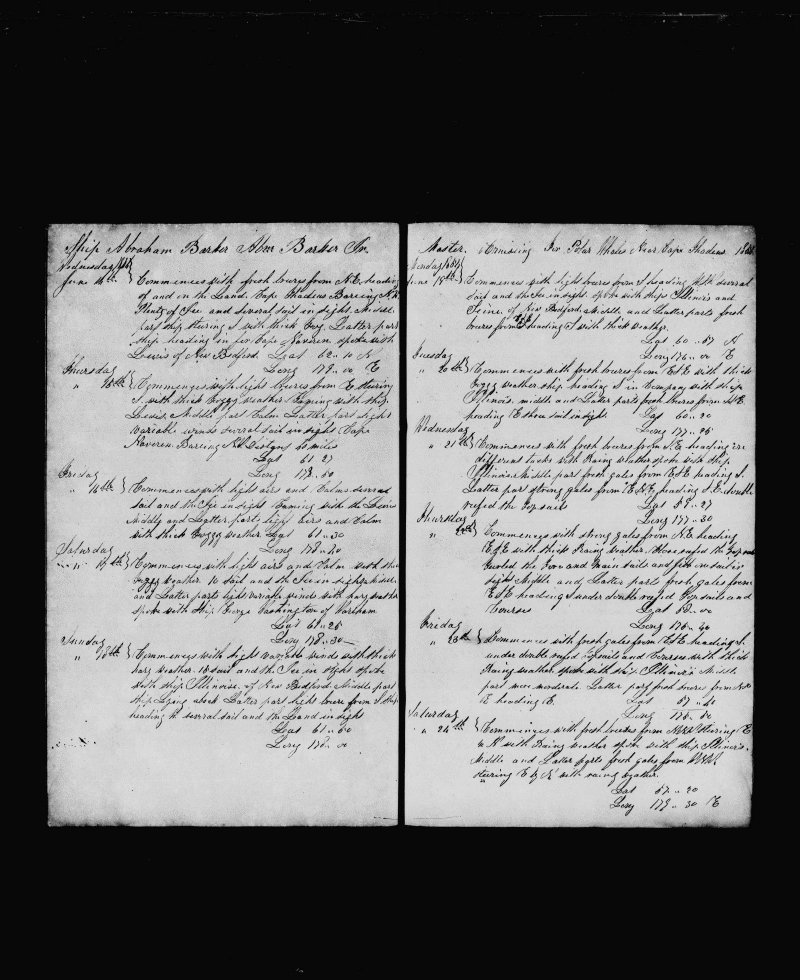 Ship Abraham Barker Abner Barker Jr.
Wednesday 1871
June 14th } Commences with fresh breres from N.E. heading
of and on the Land. Cape Thadeus Bareing N.W.
Plenty of Ice and several sail in sight. Middle
part ship stering S with thick Fog. Latter part
ship heading in for Cape Naveren spoke with
Lewis of New Bedford. Lat 62.. 10 N
Thursday Long 179.. 00 E
" 15th } Commences with light breres from E stering
S. with thick Foggy weather Gaming with ship
Lewis. Middle part Calm Latter part light
variable winds several sail in sight Cape
Naveren Bareing N.W. Distans 40 miles
Lat 61.. 27
Friday Long 178.. 50
" 16th } Commences with light airs and Calms several
sail and the Ice in sight Gaming with the Lewis
Middle and Latter parts light airs and Calm
with thick Foggy weather Lat 61.. 30
Saturday Long 178.. 40
" " 17th } Commences with light airs and Calm with thick
Foggy weather 10 sail and the Ice in sight. Middle
and Latter parts light variable winds with hazy weather
spoke with Ship George Washington of Wareham
Lat 61.. 25
Sunday Long 178.. 30
" 18th } Commences with light variable winds with thick
hazy weather. 15 sail and the Ice in sight spoke
with ship Illinoise. of New Bedford. Middle part
ship Lying aback Latter part light brere from S ship
heading W several sail and the Land in sight
Lat 61.. 00
Long 178.. 00
Master. Cruising for Polar Whales Near Cape Thadeus 1871
Monday
June 19th } Commences with light breres from S heading W.S.W. several
sail and the Ice in sight. spoke with ships Illinois and
Seine. of New Bedford. Middle and Latter parts fresh
breres from E.S.E heading S with thick weather.
Lat 60.. 57 N
Tuesday Long 176.. 00 E
" 20th } Commences with fresh breres from E.S.E with thick
Foggy weather ship heading S in Company with ship
Illinois. middle and Latter parts fresh breres from S.E.
heading E three sail in sight Lat 60.. 20
Wednesday Long 177.. 25
" 21th } Commences with fresh breres from S.E. heading on
different tacks with Rainy weather spoke with ship
Illinois. Middle part fresh gales from E.S.E heading S.
Latter part strong gales from E.N.E. heading S.E. double
reefed the Topsails Lat 59.. 27
Thursday Long 177.. 30
" 22th } Commences with strong gales from N.E. heading
E.S.E with thick Rainy weather. Close reefed the Topsails
Furled the Fore and Main sails and five sail in
sight. Middle and Latter parts fresh gales from
E.S.E heading S under double reefed Topsails and
Courses Lat 58.. 00
Friday Long 176.. 40
" 23th } Commences with fresh gales from E.S.E heading S.
under double reefed Topsails and Courses with thick
Rainy weather. spoke with ship Illinois. Middle
part more moderate. Latter part fresh breres from
heading E. Lat 57.. 40
Saturday Long 176.. 50
" 24th } Commences with fresh breres from N.N.W stering E
by N with Rainy weather spoke with ship Illinois.
Middle and Latter parts fresh gales from W.N.W.
stering E by N with rainy weather.
Lat 57.. 20
Long 179.. 30 E